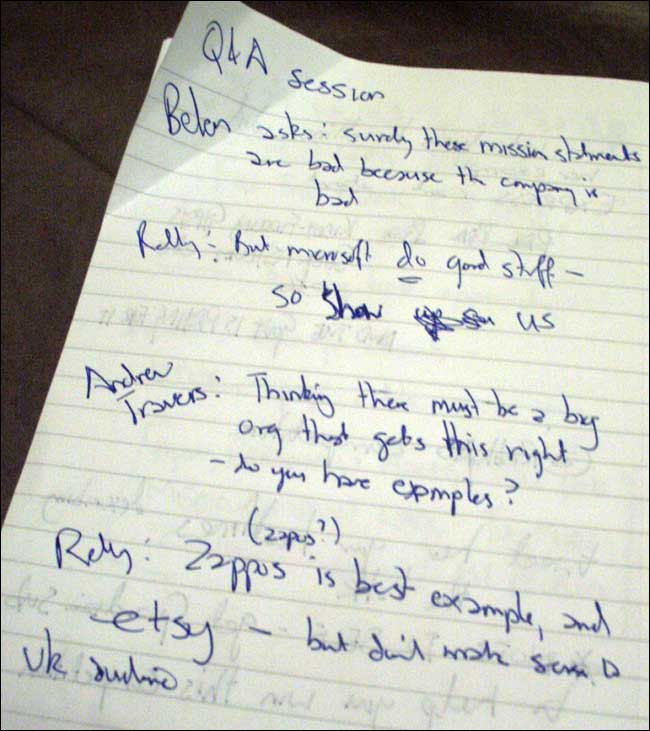 Q&A session
Belen asks: surely these mission statements
are bad because the company is
bad
Relly: But microsoft do good stuff –
so show us
Andrew
Travers: Thinking there must be a big
org that gets this right
– do you have examples?
(zapus?)
Relly: Zappos is best example, and
etsy – but don't make sense to
UK audience